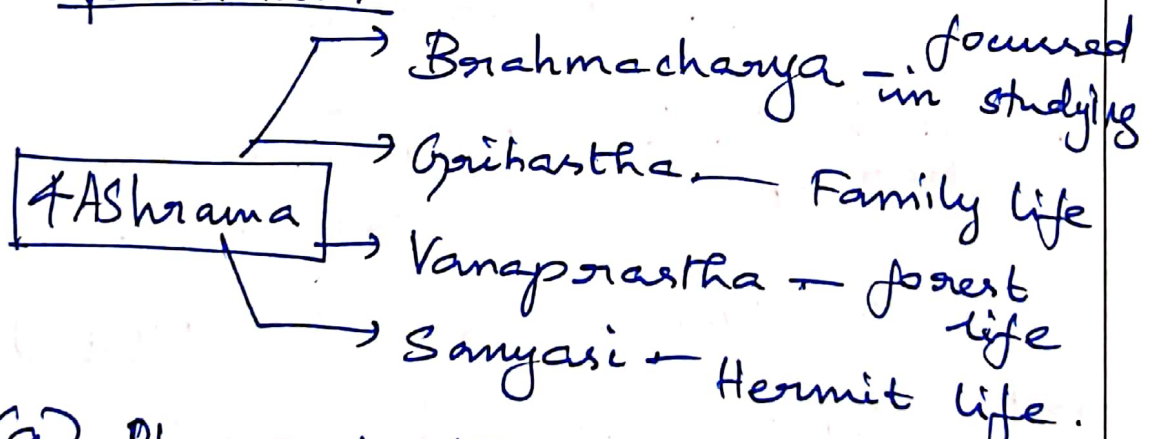 Brahmacharya - focussed
in studying
Grihastha. — Family life
4 AShrama
Vanaprastha — forest
life
Sanyasi — Hermit life.
(a)